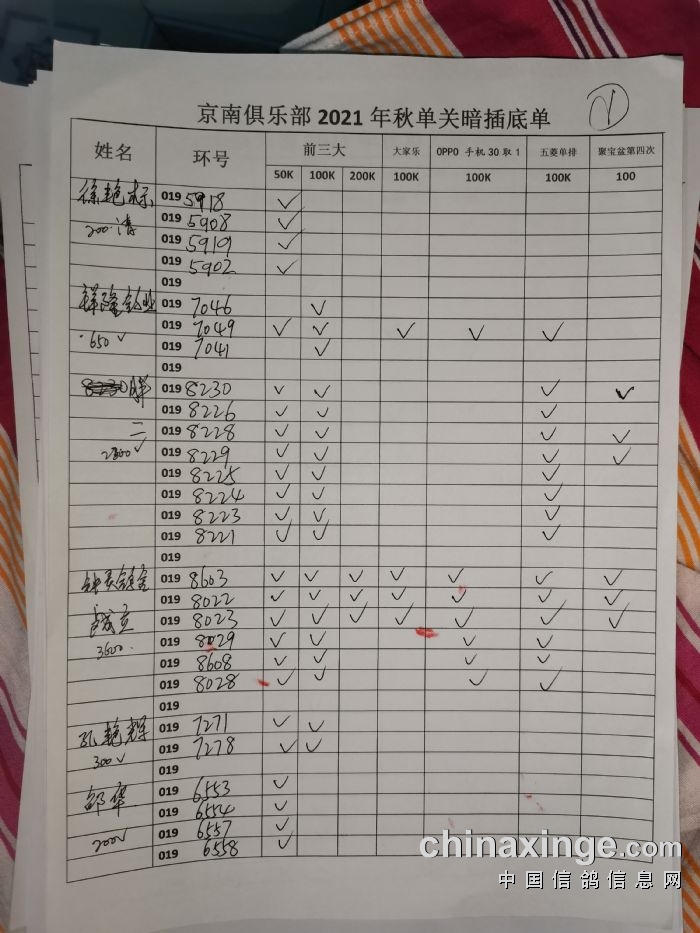 京南俱乐部 2021 年秋单关暗插底单
姓名 环号 前三大 大家乐 OPPO 手机 30 取 1 五菱单排 聚宝盆第四次
50K 100K 200K 100K 100K 100K 100
徐艳标 019 5918 ✓
200.清 019 5908 ✓
019 5919 ✓
019 5902 ✓
019
祥隆 019 7046 ✓
019 7049 ✓ ✓ ✓ ✓ ✓
650 ✓ 019 7041 ✓
019
019 8230 ✓ ✓ ✓ ✓
019 8226 ✓ ✓ ✓
二 019 8228 ✓ ✓ ✓ ✓
✓ 019 8229 ✓ ✓ ✓ ✓
019 8225 ✓ ✓ ✓
019 8224 ✓ ✓ ✓
019 8223 ✓ ✓ ✓
019 8221 ✓ ✓ ✓
019
019 8603 ✓ ✓ ✓ ✓ ✓ ✓ ✓
019 8022 ✓ ✓ ✓ ✓ ✓ ✓ ✓
019 8023 ✓ ✓ ✓ ✓ ✓ ✓ ✓
3600. 019 8029 ✓ ✓ ✓ ✓
019 8608 ✓ ✓ ✓ ✓
019 8028 ✓ ✓ ✓ ✓
019
孔艳辉 019 7271 ✓ ✓
300 ✓ 019 7278 ✓ ✓
019
邹华 019 6553 ✓
019 6554 ✓
200 ✓ 019 6557 ✓
019 6558 ✓
chinaxinge.com
中国信鸽信息网